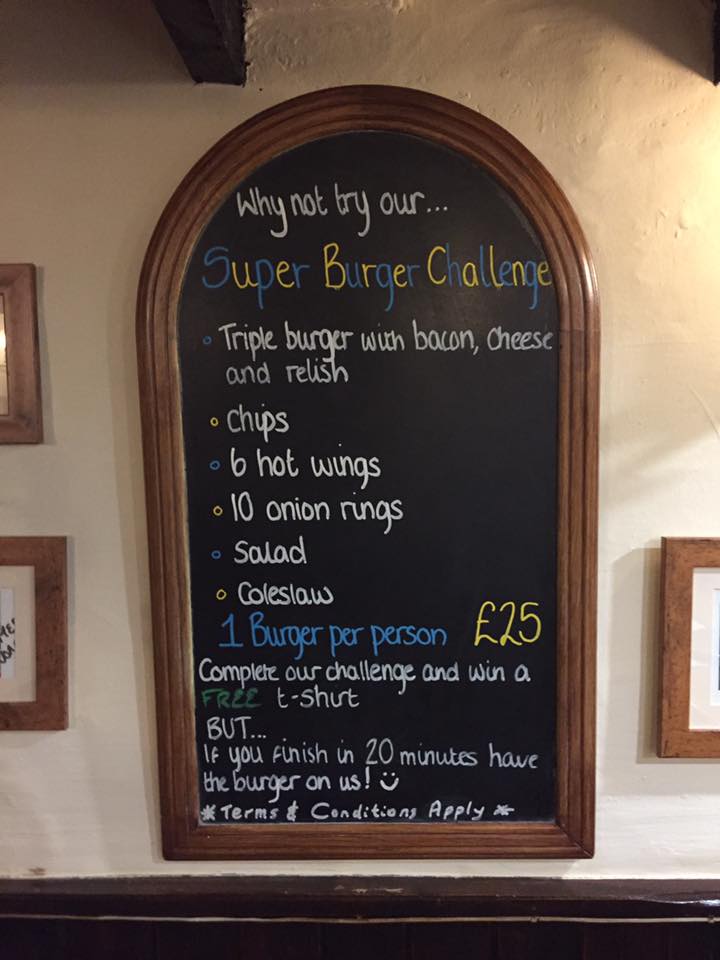 Why not try our...
Super Burger Challenge
Triple burger with bacon, cheese
and relish
chips
6 hot wings
10 onion rings
Salad
Coleslaw
1 Burger per person £25
Complete our challenge and win a
FREE t-shirt
BUT...
If you finish in 20 minutes have
the burger on us!
*Terms & Conditions Apply *